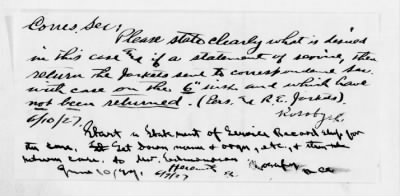 Corres. Sec:
Please state clearly what is desired
in this case and if a statement of service, then
return the Jackets sent to correspondence sec.
with case on the 6" inst and which have
not been returned. (Pers. & R.E. Jackets).
6/10/27.
Start a Statement of Service Record slip for
the case. Get down name & orgn, etc., & then
case. to Mr. Edmondson
June 10/27.